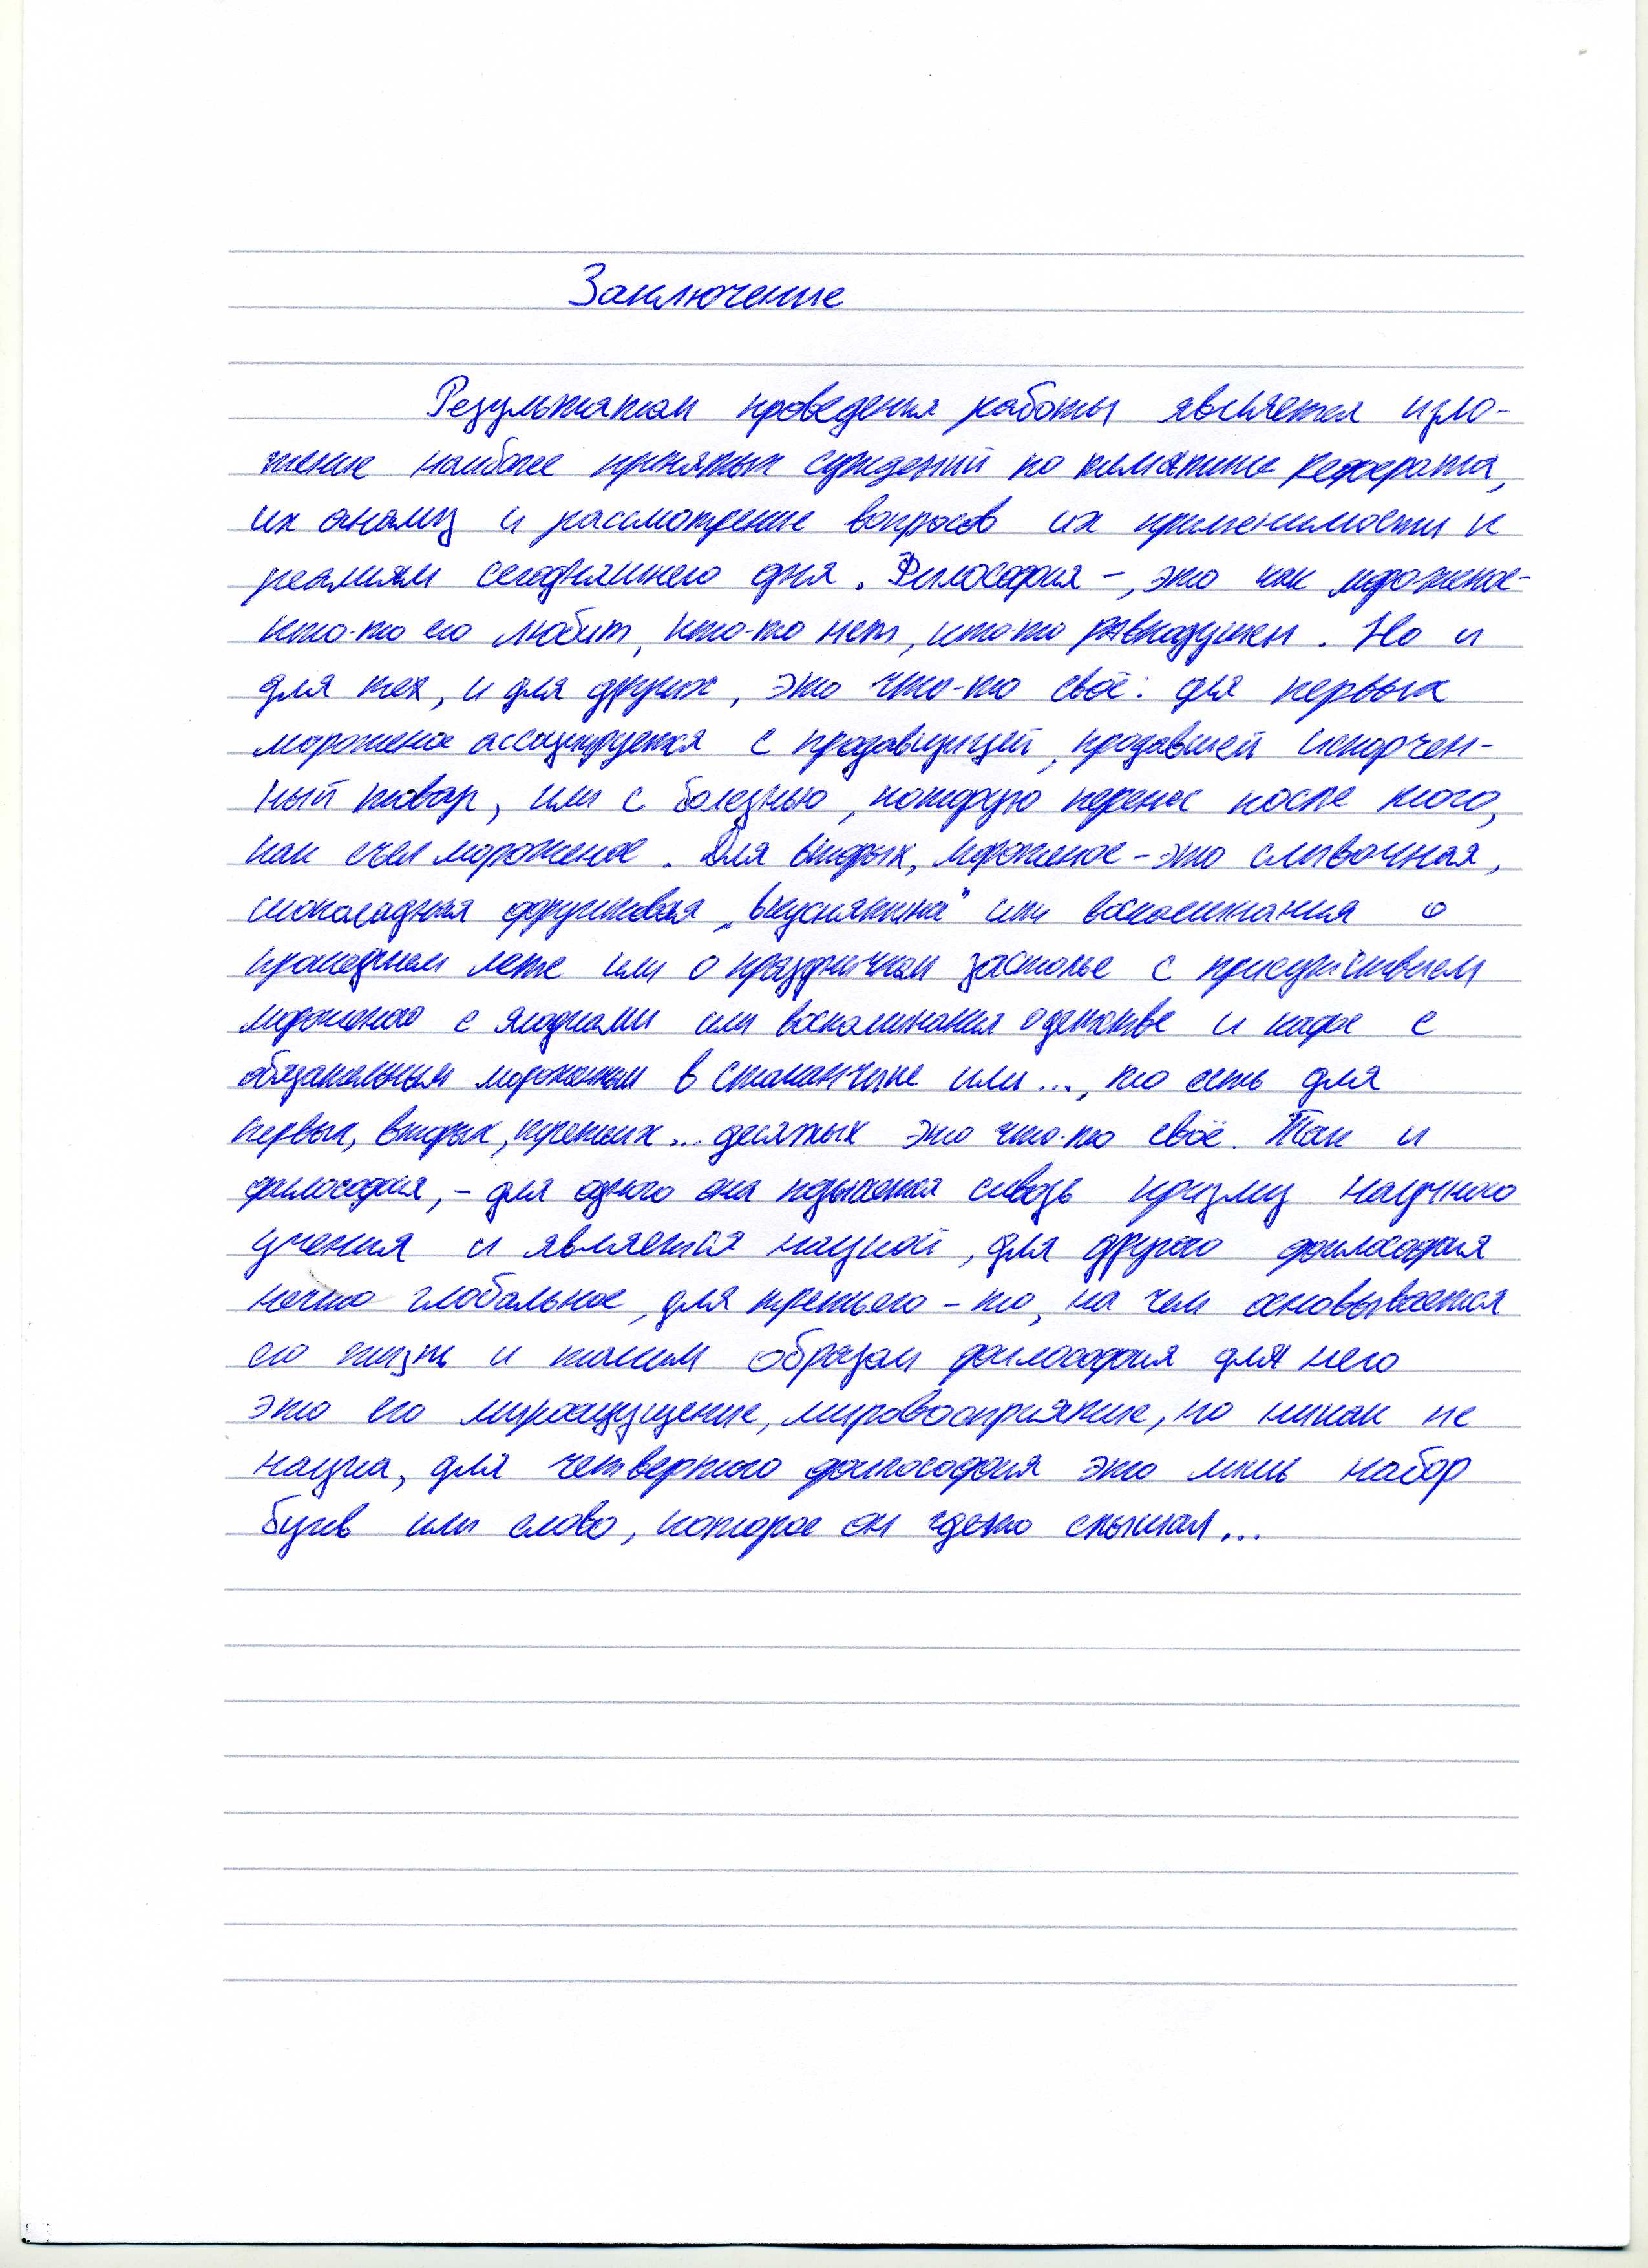 Заключение
Результатом проведения работы является изло-
жение наиболее принятых суждений по тематике реферата,
их анализ и рассмотрение вопросов их применимости к
реалиям сегодняшнего дня. Философия –, это как мороженое-
кто-то его любит, кто-то нет, кто-то равнодушен. Но и
для тех, и для других, это что-то своё: для первых
мороженое ассоциируется с продавщицей, продавшей испорчен-
ный товар, или с болезнью, которую перенес после того,
как съел мороженое. Для вторых, мороженое – это сливочная,
шоколадная фруктовая „вкуснятина" или воспоминания о
прошедшем лете или о праздничном застолье с присутствием
мороженого с ягодками или воспоминания о детстве и кафе с
обязательным мороженым в стаканчике или..., то есть для
первых, вторых, третьих... десятых это что-то своё. Так и
философия, – для одного она изучается сквозь призму научного
учения и является наукой, для другого философия
нечто глобальное, для третьего – то, на чем основывается
его жизнь и таким образом философия для него
это его мироощущение, мировосприятие, но никак не
наука, для четвертого философия это лишь набор
букв или слово, которое он где-то слышал...